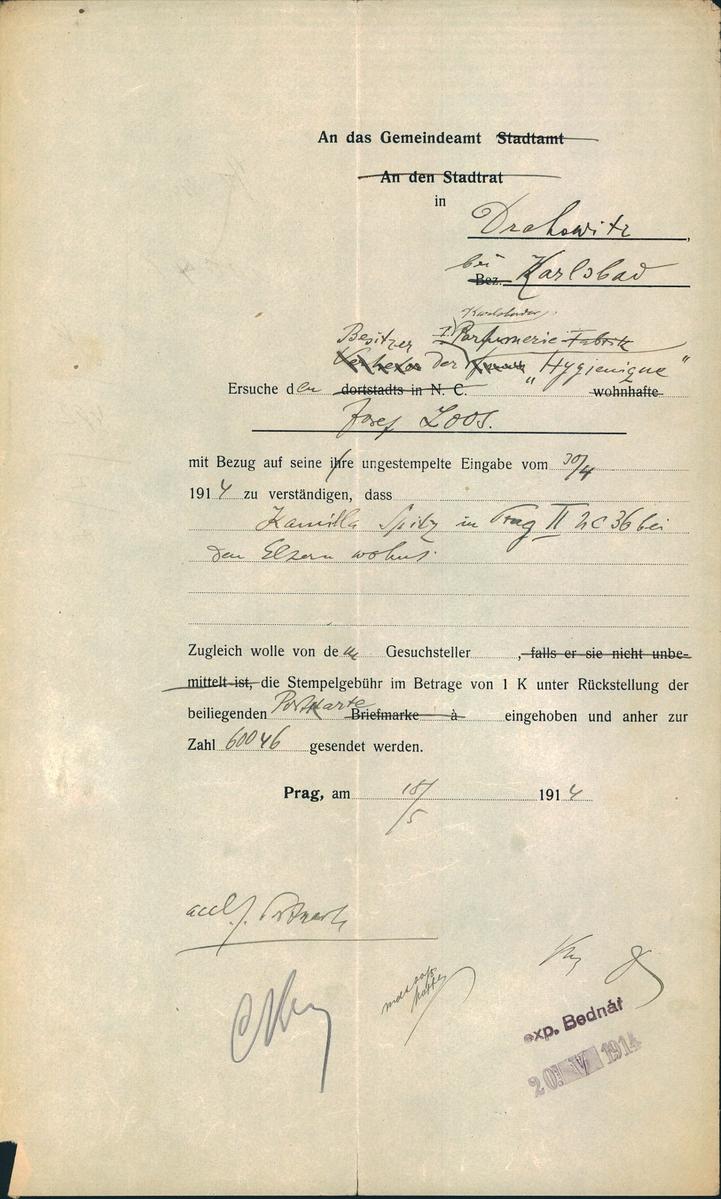 An das Gemeindeamt Stadtamt
An den Stadtrat
in
Drahowitz,
bei Bez. Karlsbad
Karlsbader
Besitzer I. Parfumerie Fabrik
der "Hygienique"
Ersuche den dortstadts in N. C. wohnhafte
Josef Loos.
mit Bezug auf seine ihre ungestempelte Eingabe vom 30/4
1914 zu verständigen, dass
Kamilla Spitz in Prag II NC 36 bei
den Eltern wohnt.
Zugleich wolle von dem Gesuchsteller, falls er sie nicht unbe-
mittelt ist, die Stempelgebühr im Betrage von 1 K unter Rückstellung der
beiliegenden Postkarte Briefmarke à eingehoben und anher zur
Zahl 60046 gesendet werden.
Prag, am 18/5 1914
exp. Bednář
20. V 1914